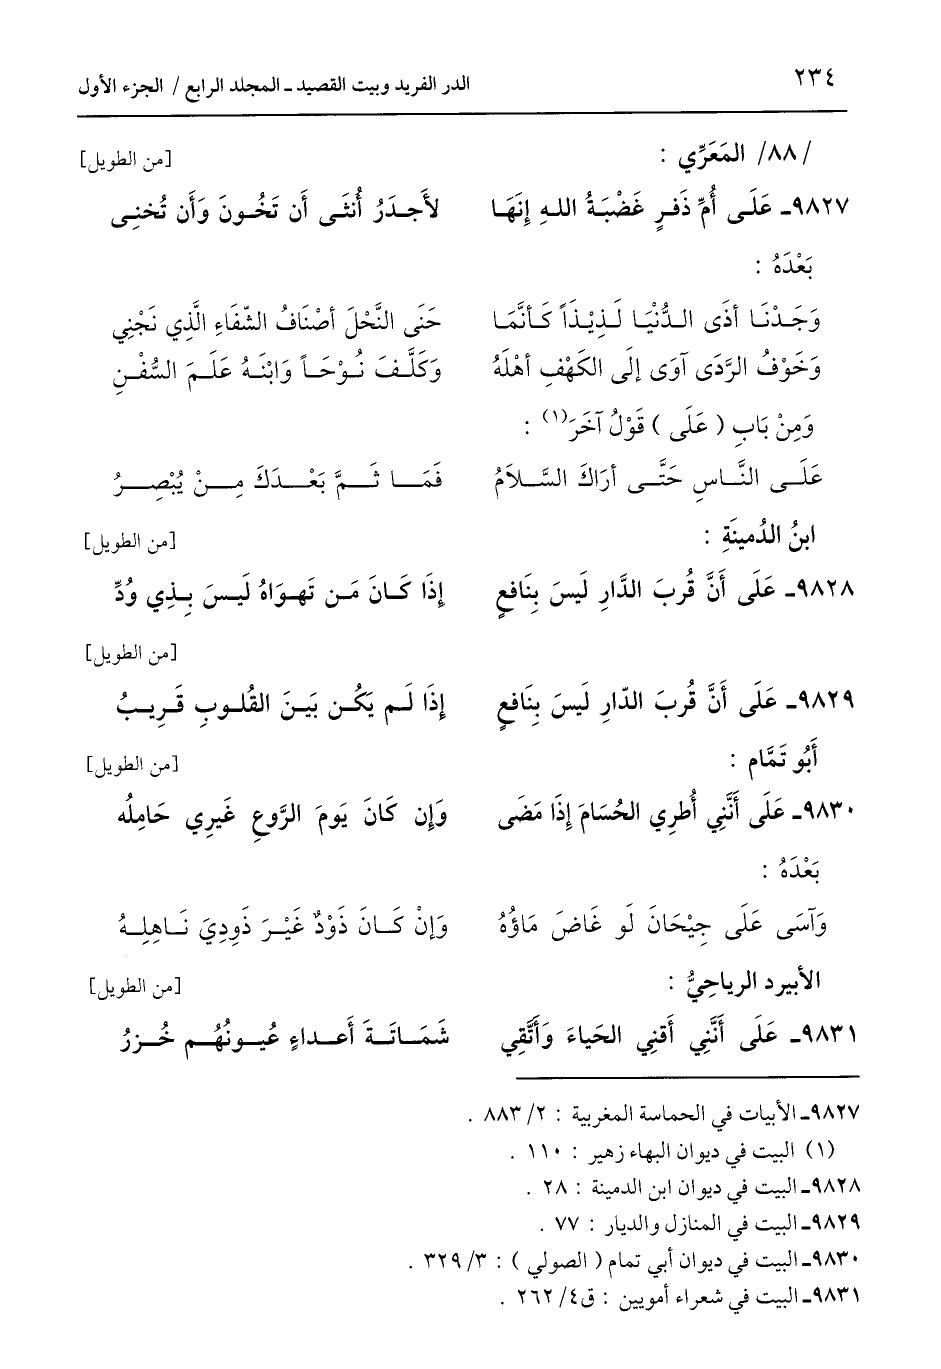 ٢٣٤ الدر الفريد وبيت القصيد ـ المجلد الرابع / الجزء الأول
/٨٨/ المَعَرِّي : [من الطويل]
٩٨٢٧ـ عَلَى أُمِّ ذَفرٍ غَضْبَةُ اللهِ إِنَهَا لأَجدَرُ أُنثَى أَن تَخُونَ وَأَن تُخنِى
بَعْدَهُ :
وَجَدْنَا أذَى الدُّنْيَا لَذِيْذَاً كَأنَّمَا حَنَى النَّحْلَ أصْنَافُ الشّفَاءِ الَّذِي نَجْنِي
وَخَوْفُ الرَّدَى آوَى إِلَى الكَهْفِ أهْلَهُ وَكَلَّفَ نُوْحَاً وَابْنَهُ عَلَمَ السُّفْنِ
وَمِنْ بَابِ ( عَلَى ) قَوْلُ آخَرَ(١) :
عَلَى النَّاسِ حَتَّى أرَاكَ السَّلاَمُ فَمَا ثَمَّ بَعْدَكَ مِنْ يُبْصِرُ
ابنُ الدُمينَةِ : [من الطويل]
٩٨٢٨ـ عَلَى أَنَّ قُربَ الدَّارِ لَيسَ بِنَافعٍ إِذَا كَانَ مَن تَهوَاهُ لَيسَ بِذِي وُدِّ
[من الطويل]
٩٨٢٩ـ عَلَى أَنَّ قُربَ الدّارِ لَيسَ بِنَافعٍ إِذَا لَم يَكُن بَينَ القُلوبِ قَرِيبُ
أَبُو تَمَّام : [من الطويل]
٩٨٣٠ـ عَلَى أَنَّنِي أُطرِي الحُسَامَ إِذَا مَضَى وَإِن كَانَ يَومَ الرَّوعِ غَيرِي حَامِلُه
بَعْدَهُ :
وَآسَى عَلَى جِيْحَانَ لَو غَاضَ مَاؤُهُ وَإنْ كَانَ ذَوْدٌ غَيْرَ ذَودِيَ نَاهِلِهُ
الأبيرد الرياحِيُّ : [من الطويل]
٩٨٣١ـ عَلَى أَنَّنِي أَقنِي الحَيَاءَ وَأَتَّقِي شَمَاتَةَ أَعداءٍ عُيونُهُم خُزرُ
٩٨٢٧ـ الأبيات في الحماسة المغربية : ٢/ ٨٨٣ .
(١) البيت في ديوان البهاء زهير : ١١٠ .
٩٨٢٨ـ البيت في ديوان ابن الدمينة : ٢٨ .
٩٨٢٩ـ البيت في المنازل والديار : ٧٧ .
٩٨٣٠ـ البيت في ديوان أبي تمام ( الصولي ) : ٣/ ٣٢٩ .
٩٨٣١ـ البيت في شعراء أمويين : ق٤/ ٢٦٢ .